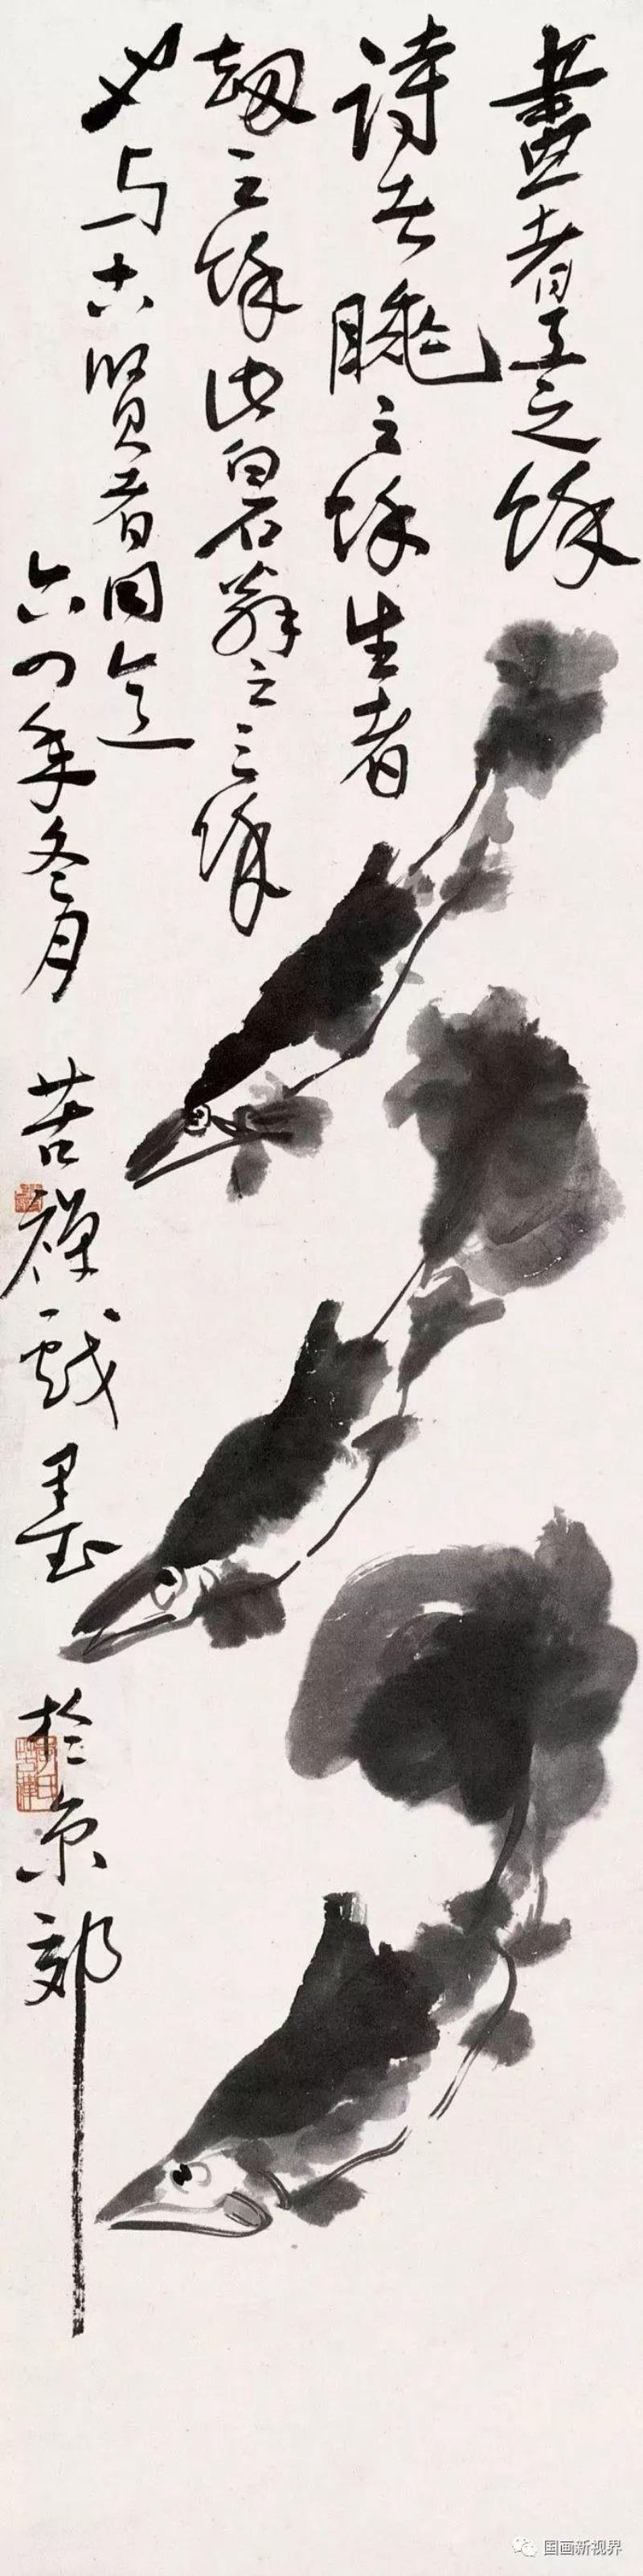 畫者工之餘
詩者睡之餘生者
劫之餘此白石之三餘
也与古賢者同
六四年冬月 苦禪戲墨 於京郊
国画新视界